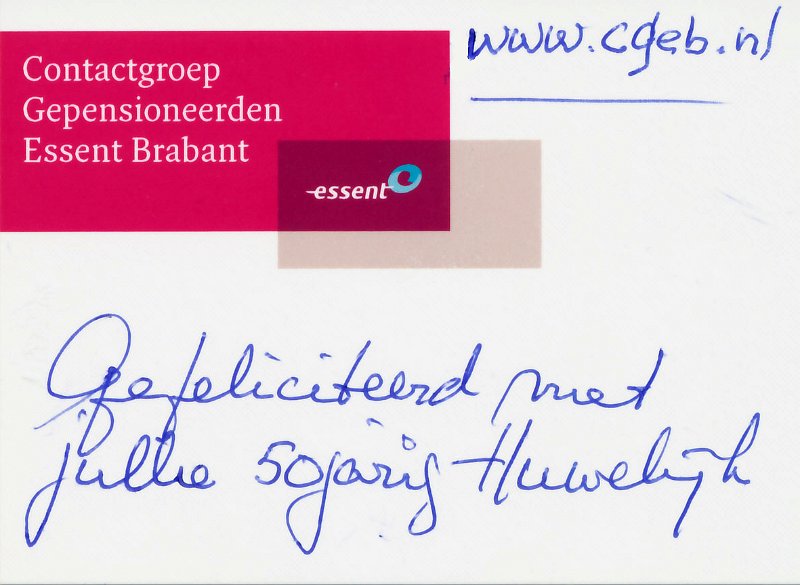 www.cgeb.nl
Contactgroep
Gepensioneerden
Essent Brabant
essent
Gefeliciteerd met
jullie 50jarig Huwelijk